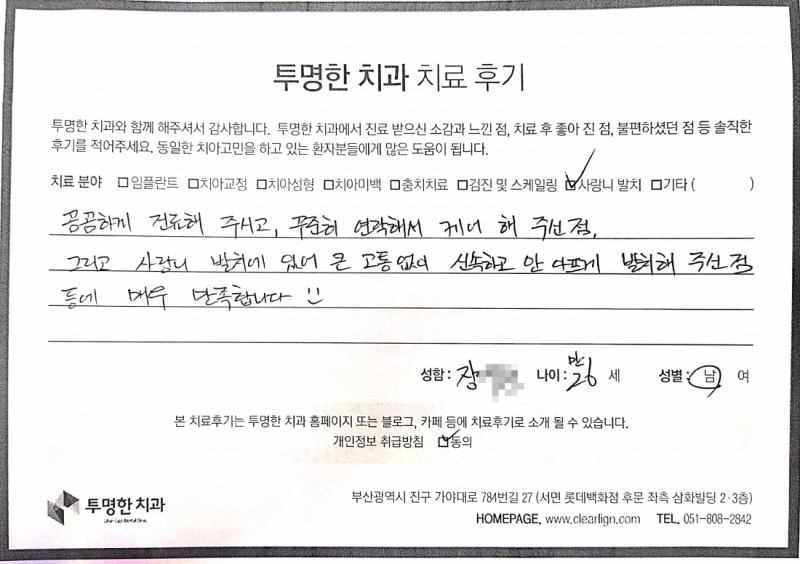 투명한 치과 치료 후기
투명한 치과와 함께 해주셔서 감사합니다. 투명한 치과에서 진료 받으신 소감과 느낀 점, 치료 후 좋아 진 점, 불편하셨던 점 등 솔직한
후기를 적어주세요. 동일한 치아고민을 하고 있는 환자분들에게 많은 도움이 됩니다.
치료 분야 □임플란트 □치아교정 □치아성형 □치아미백 □충치치료 □검진 및 스케일링 ☑사랑니 발치 □기타 ( )
꼼꼼하게 진료해 주시고, 꾸준히 연락해서 케어 해 주신 점,
그리고 사랑니 발치에 있어 큰 고통 없이 신속하고 안 아프게 발치해 주신 점
등에 매우 만족합니다 :)
성함 : 장 나이 : 만 26 세 성별 : 남 여
본 치료후기는 투명한 치과 홈페이지 또는 블로그, 카페 등에 치료후기로 소개 될 수 있습니다.
개인정보 취급방침 ☑동의
투명한 치과
부산광역시 진구 가야대로 784번길 27 (서면 롯데백화점 후문 좌측 삼화빌딩 2·3층)
HOMEPAGE. www.clearlign.com TEL. 051-808-2842